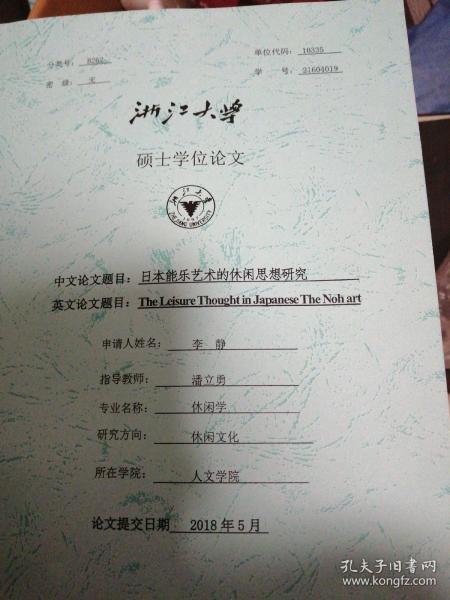 分类号： B262 单位代码： 10335
密 级： 无 学 号： 21604019
浙江大学
硕士学位论文
浙江大学
ZHEJIANG UNIVERSITY
1897
中文论文题目： 日本能乐艺术的休闲思想研究
英文论文题目： The Leisure Thought in Japanese The Noh art
申请人姓名： 李 静
指导教师： 潘立勇
专业名称： 休闲学
研究方向： 休闲文化
所在学院： 人文学院
论文提交日期 2018 年 5 月
孔夫子旧书网
www.kongfz.com